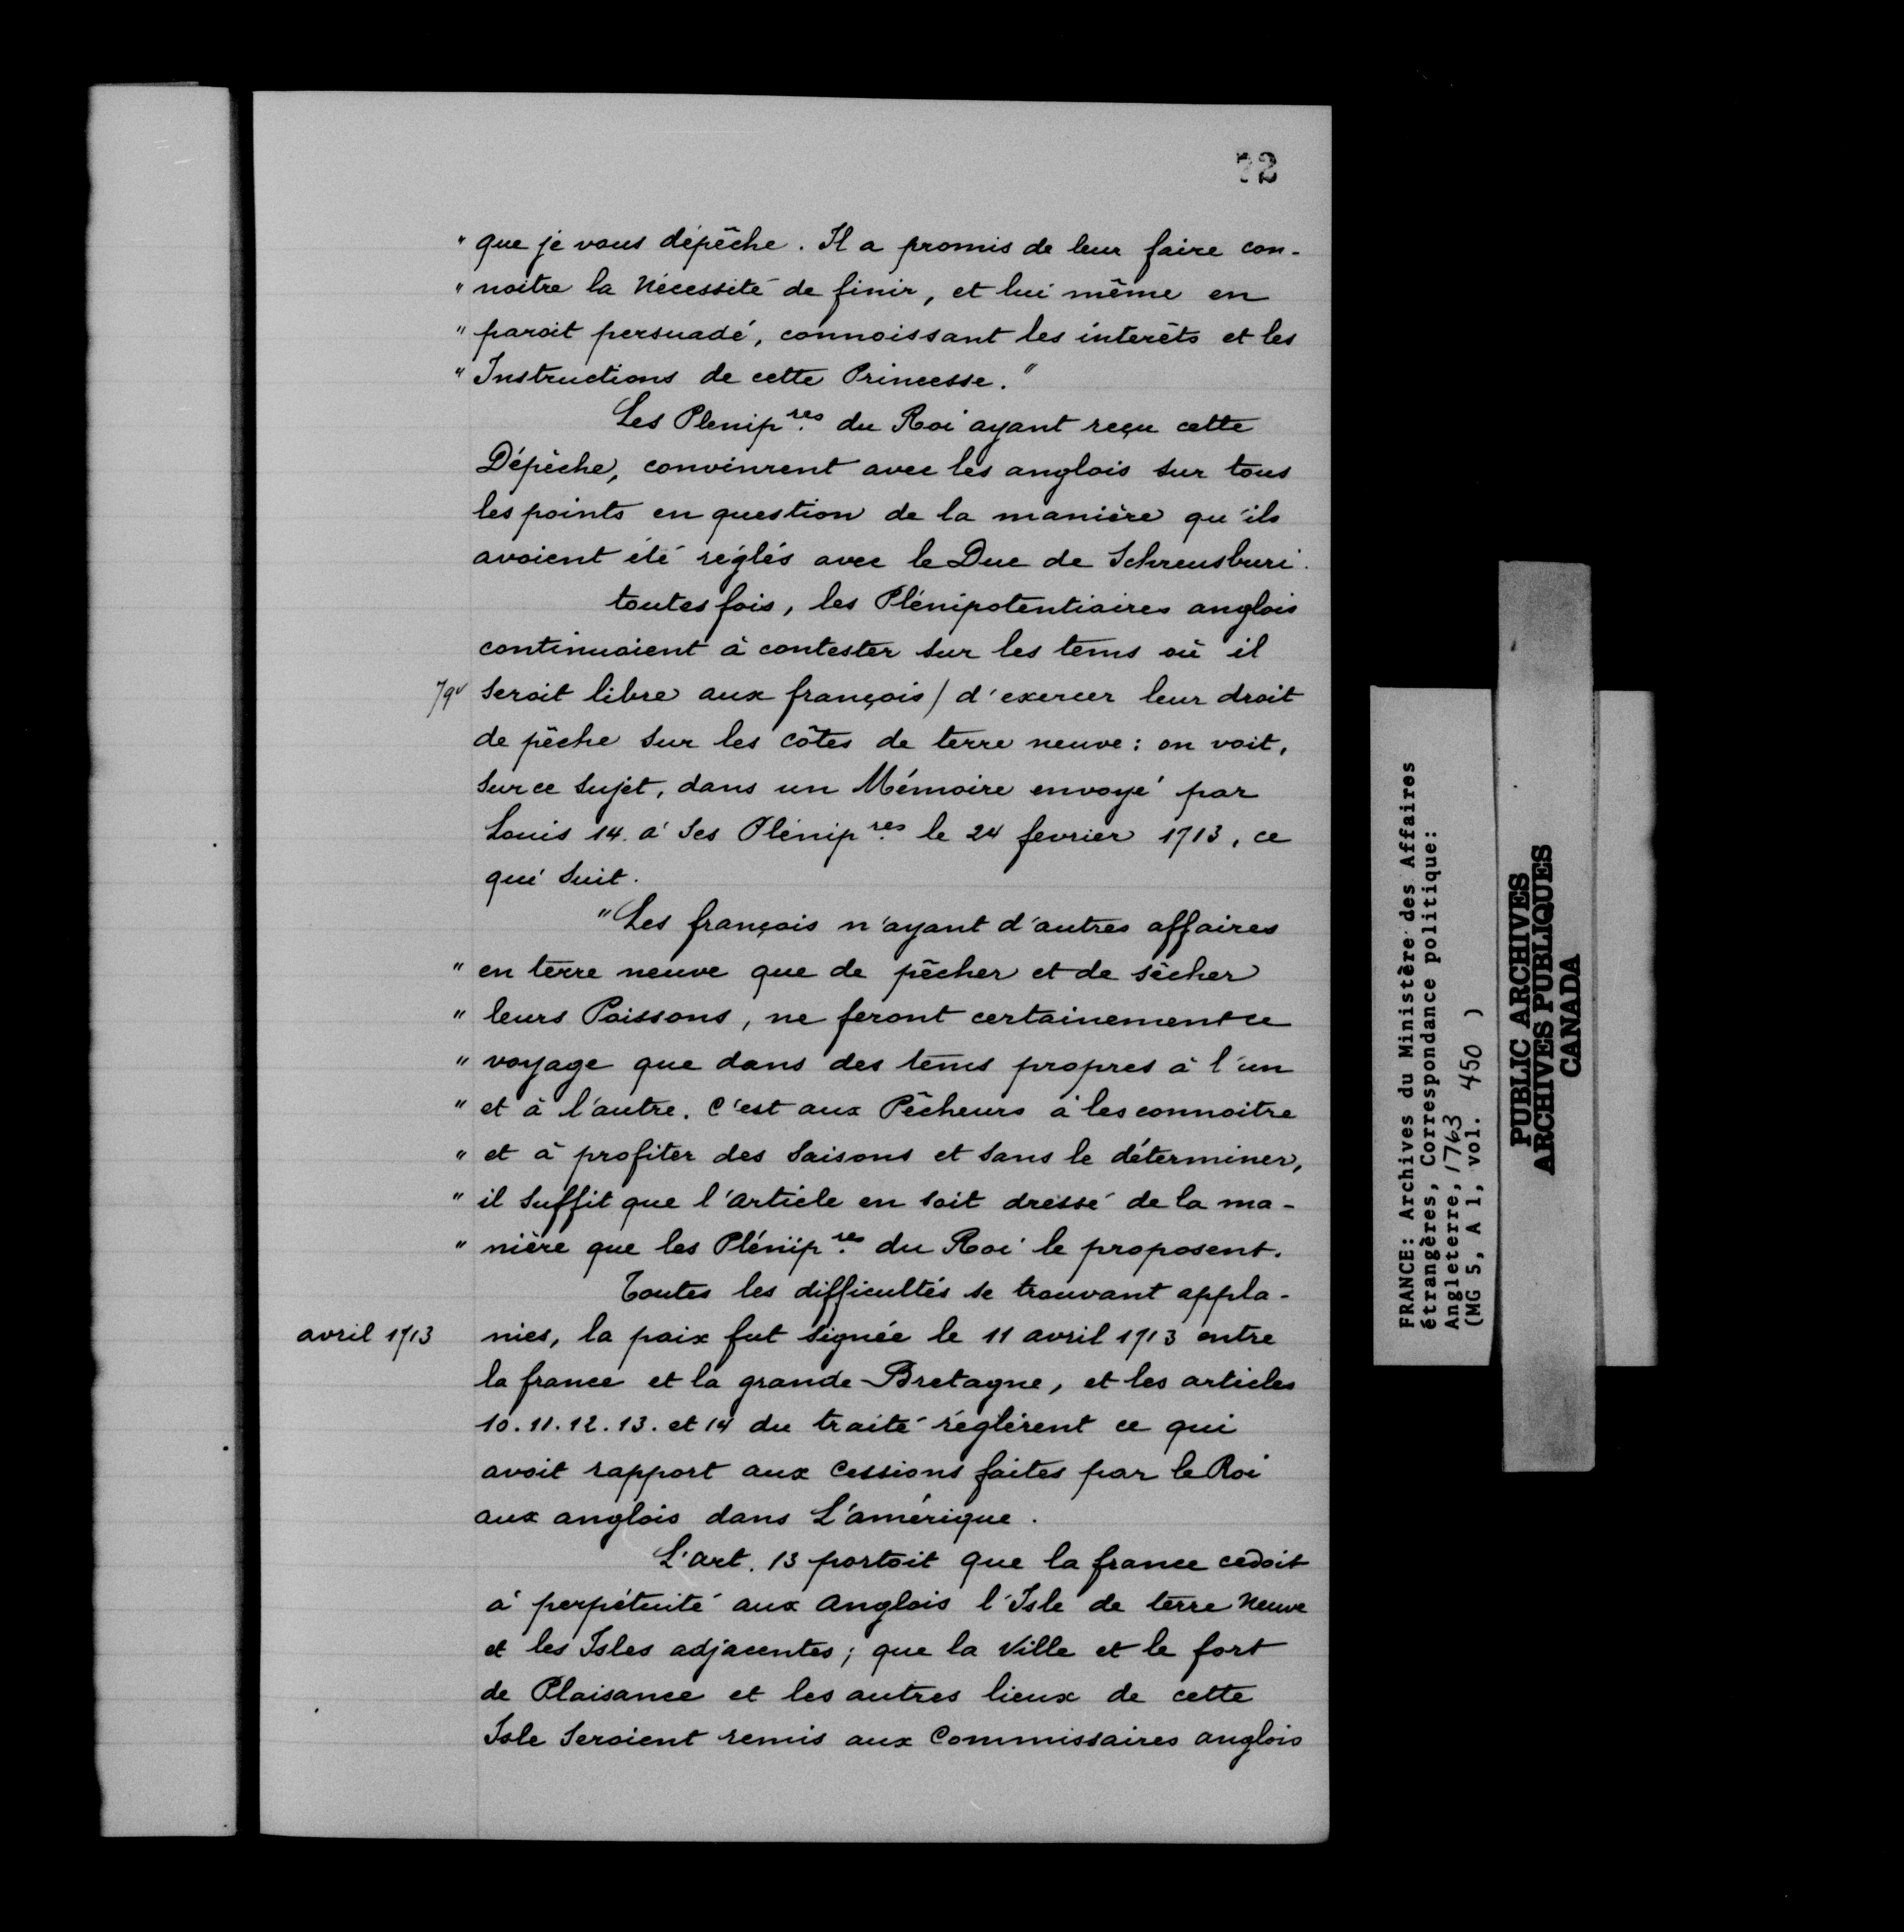 72
" que je vous dépêche. Il a promis de leur faire con-
" noitre la Nécessité de finir, et lui même en
" paroit persuadé, connoissant les interêts et les
" Instructions de cette Princesse."
Les Plenip.res du Roi ayant reçu cette
Dépêche, convinrent avec les anglois sur tous
les points en question de la manière qu'ils
avoient été réglés avec le Duc de Schreusburi.
toutes fois, les Plénipotentiaires anglois
continuoient à contester sur les tems où il
79v seroit libre aux françois / d'exercer leur droit
de pêche sur les côtes de terre neuve : on voit,
sur ce sujet, dans un Mémoire envoyé par
Louis 14. à ses Plénip.res le 24 fevrier 1713, ce
qui suit.
"Les françois n'ayant d'autres affaires
" en terre neuve que de pêcher et de sècher
" leurs Poissons, ne feront certainement ce
" voyage que dans des tems propres à l'un
" et à l'autre. C'est aux Pêcheurs à les connoitre
" et à profiter des saisons et sans le déterminer,
" il suffit que l'article en soit dressé de la ma-
" nière que les Plénip.res du Roi le proposent.
Toutes les difficultés se trouvant appla-
avril 1713 nies, la paix fut signée le 11 avril 1713 entre
la france et la grande-Bretagne, et les articles
10. 11. 12. 13. et 14 du traité réglèrent ce qui
avoit rapport aux Cessions faites par le Roi
aux anglois dans L'amérique.
L'art. 13 portoit que la france cédoit
à perpétuité aux Anglois l'Isle de terre Neuve
et les Isles adjacentes ; que la Ville et le fort
de Plaisance et les autres lieux de cette
Isle seroient remis aux Commissaires anglois
FRANCE: Archives du Ministère des Affaires
étrangères, Correspondance politique:
Angleterre, 1763
(MG 5, A 1, vol. 450 )
PUBLIC ARCHIVES
ARCHIVES PUBLIQUES
CANADA